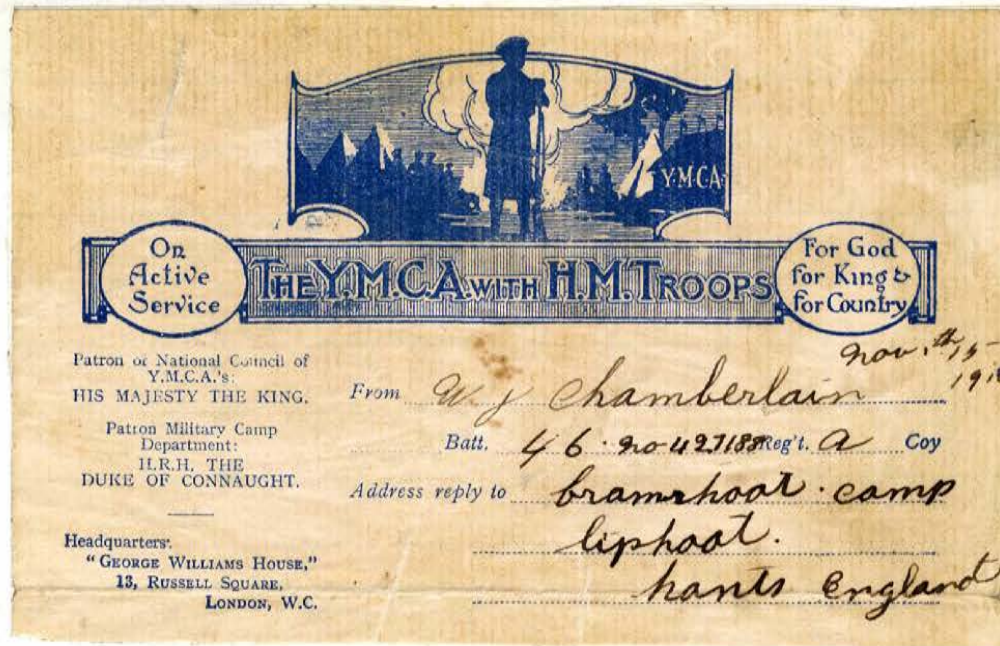 Y·M·C·A·
On
Active
Service
THE Y.M.C.A. WITH H.M. TROOPS
For God
for King &
for Country
Patron of National Council of
Y.M.C.A.'s:
HIS MAJESTY THE KING.
Patron Military Camp
Department:
H.R.H. THE
DUKE OF CONNAUGHT.
Headquarters:
"GEORGE WILLIAMS HOUSE,"
13, RUSSELL SQUARE,
LONDON, W.C.
nov. th 15
From W. J Chamberlain
Batt. 46. no 427188 Reg't. A Coy
Address reply to bramshoat. camp
liphoat.
hants England